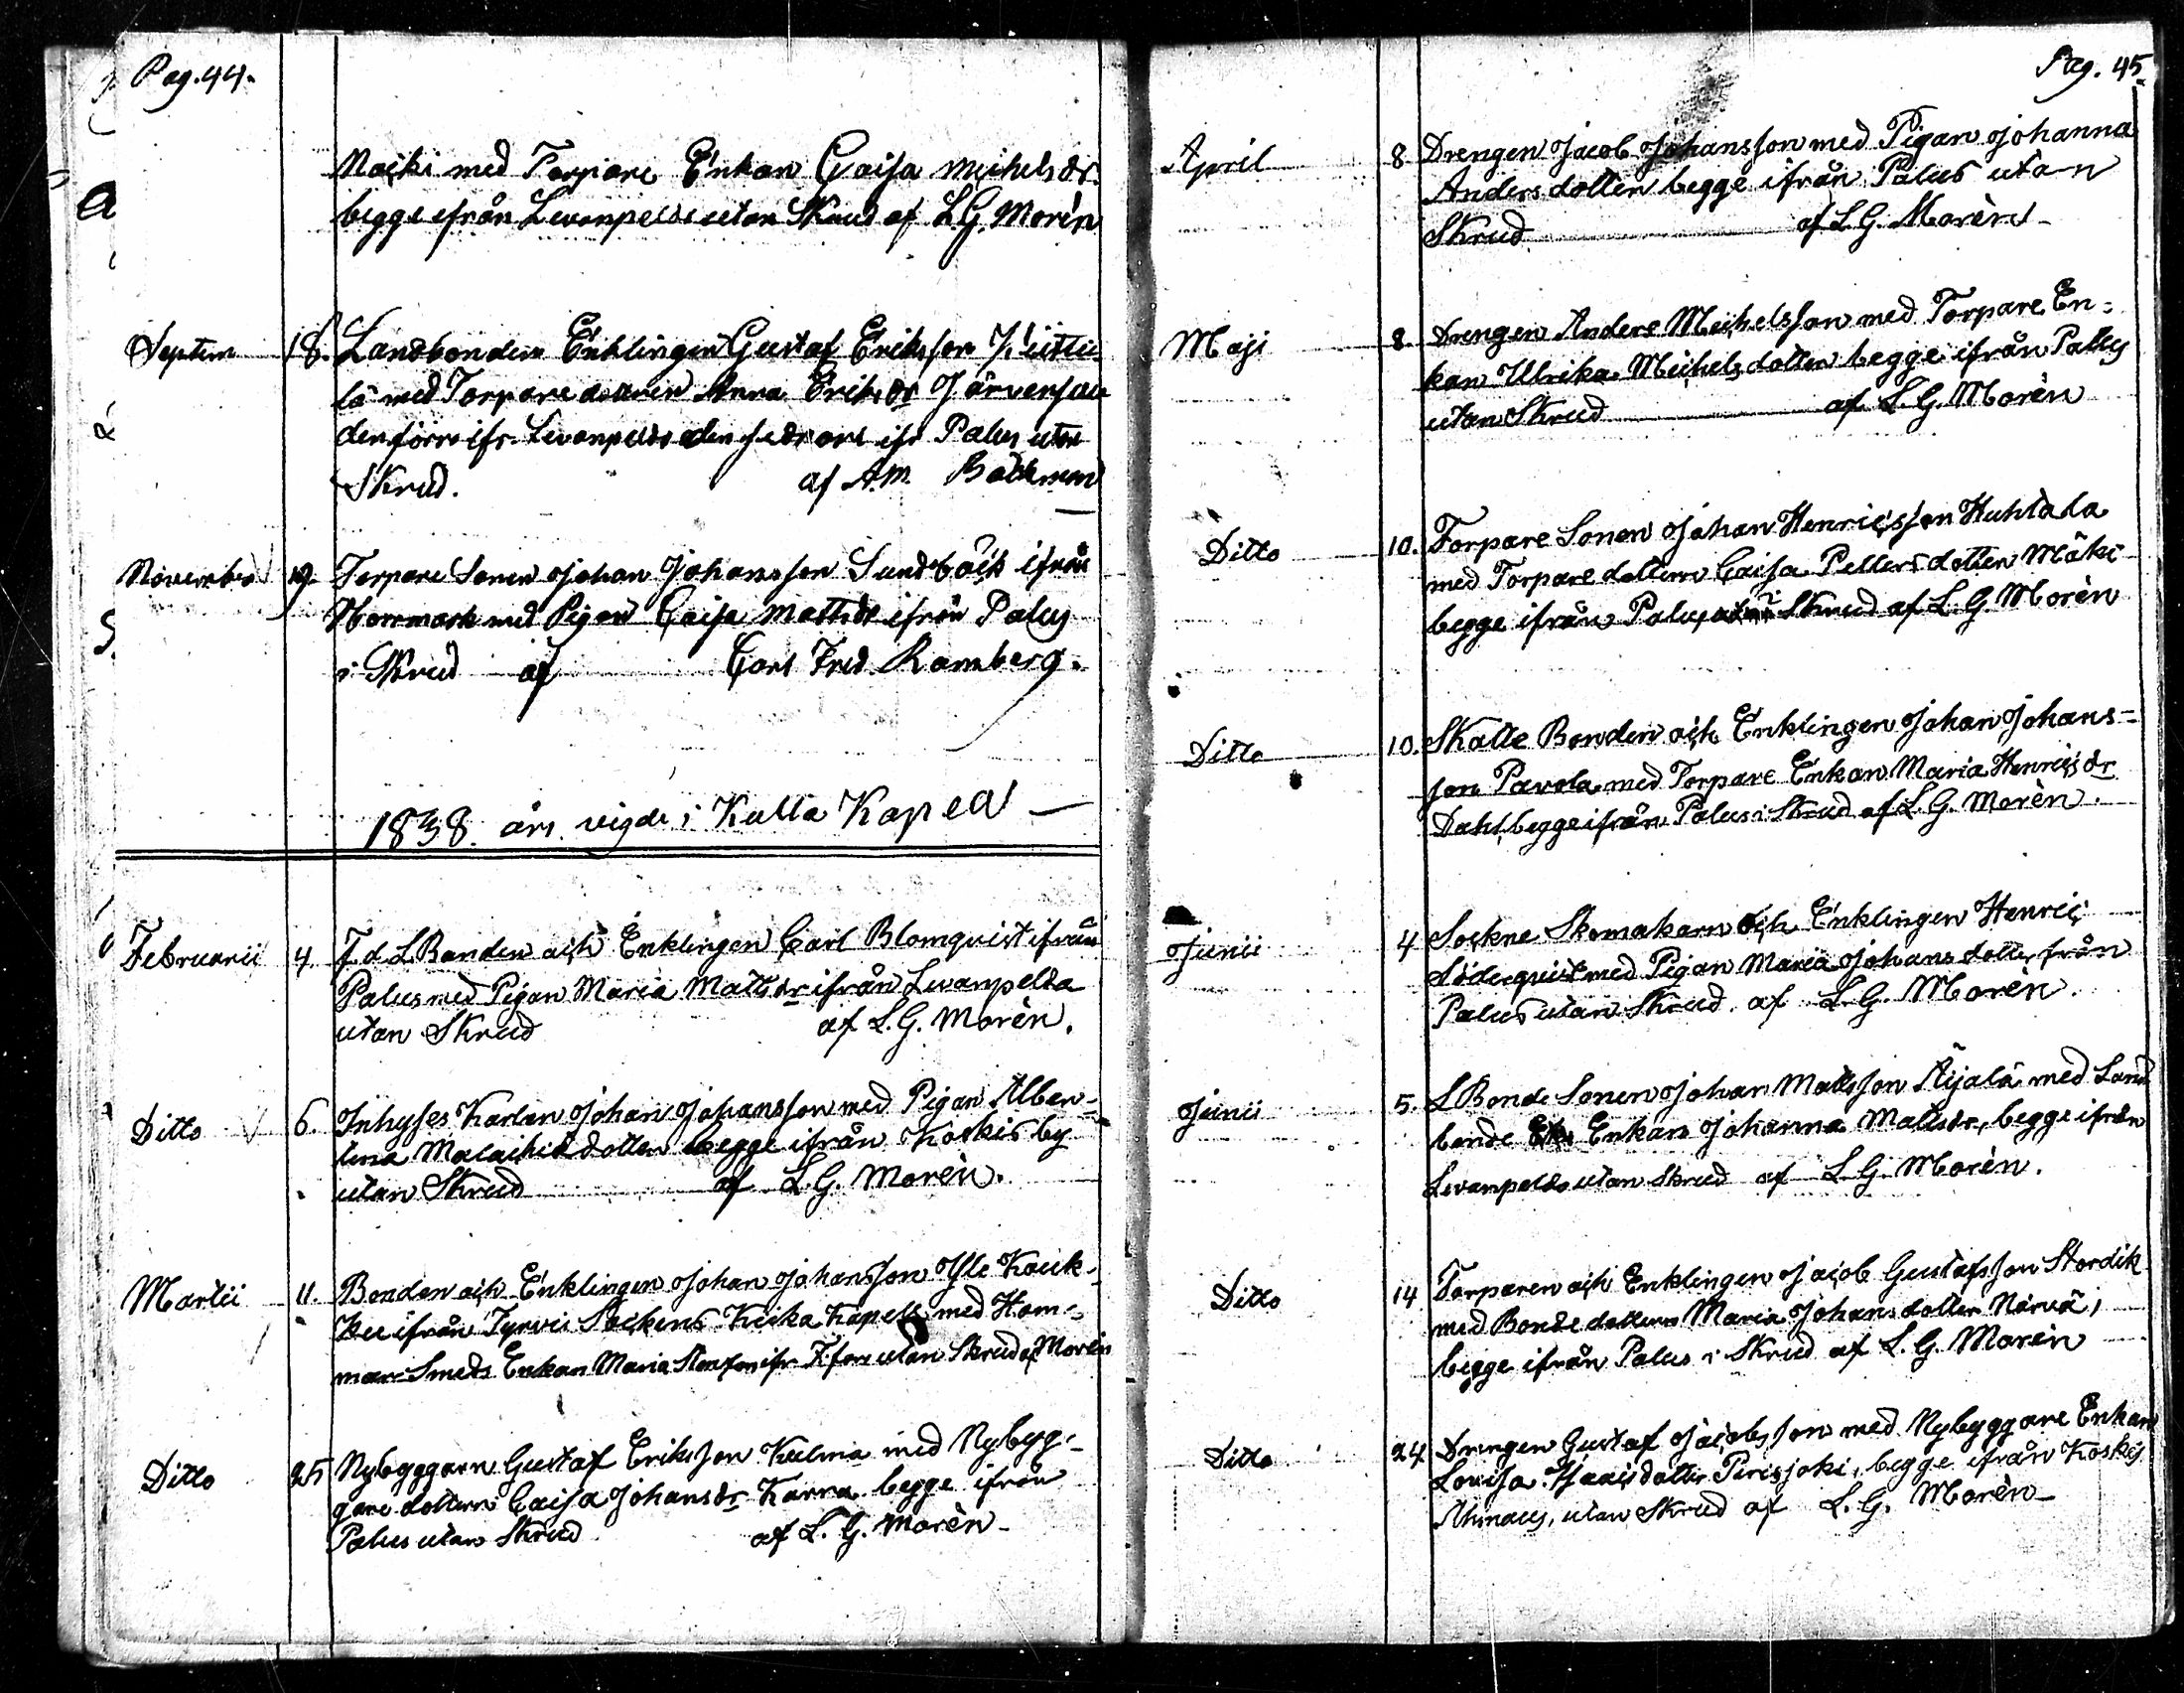 Pag. 44.
Macki med Torpare Enkan Caisa Michelsdr.
begge ifrån Levanpelde utan Skrud af L.G. Morèn
Septem 18. Landbonden Enklingen Gustaf Eriksson
lä med Torpare dottren Anna Eriksdr Järvensuu
den förre ifr. Levanpeldo den sednare ifr Palus utan
Skrud. af A.M. Bäckman
November 19. Torpare Sonen Johan Johansson Sundbäck ifrån
Norrmark med Pigan Caisa Mattsdr ifrån Palus
i Skrud af Carl Fred. Ramberg.
1838. års vigde i Kulla Kapell
Februarii 4. F d L Bonden och Enklingen Carl Blomquist ifrån
Palus med Pigan Maria Mattsdr ifrån Levanpelda
utan Skrud af L.G. Morèn.
Ditto 6. Inhyses Karlen Johan Johansson med Pigan Alber-
tina Malachidotter begge ifrån Koskis by
utan Skrud af L.G. Morèn.
Martii 11. Bonden och Enklingen Johan Johansson Yle Kauk-
kee ifrån Tyrvis Sockens Kicka Kapell med Ham-
mar Smeds Enkan Maria ifr. utan Skrud af Morèn
Ditto 25 Nybyggaren Gustaf Eriksson Kulma med Nybyg-
gare dottern Caisa Johansdr Karra begge ifrån
Palus utan Skrud af L. G. Morèn
Pag. 45.
April 8 Drengen Jacob Johansson med Pigan Johanna
Andersdotter begge ifrån Palus utan
Skrud af L. G. Morèn
Maji 8. Drengen Anders Michelsson med Torpare En-
kan Ulrika Michelsdotter begge ifrån Palus
utan Skrud af L. G. Morèn
Ditto 10. Torpare Sonen Johan Henricsson Huhtala
med Torpare dottern Caisa Pettersdotter Mäki
begge ifrån Palus i Skrud af L. G. Morèn
Ditto 10. Skatte Bonden och Enklingen Johan Johans-
son Pavola med Torpare Enkan Maria Henricsdr
Dahl, begge ifrån Palus i Skrud af L. G. Morèn.
Junii 4 Sockne Skomakarn och Enklingen Henric
Söderquist med Pigan Maria Johansdotter från
Palus utan Skrud af L. G. Morèn.
Junii 5. L Bonde Sonen Johan Mattsson Äijälä med Land
bonde Enkan Johanna Mattsdr, begge ifrån
Levanpeldo utan Skrud af L. G. Morèn.
Ditto 14 Torparen och Enklingen Jacob Gustafsson Stordik
med Bonde dottern Maria Johansdotter Närvä,
begge ifrån Palus i Skrud af L. G. Morèn
Ditto 24 Drengen Gustaf Jacobsson med Nybyggare Enkan
Lovisa Isaacsdotter Perisjoki, begge ifrån Koskis
Ahmaus, utan Skrud af L. G. Morèn